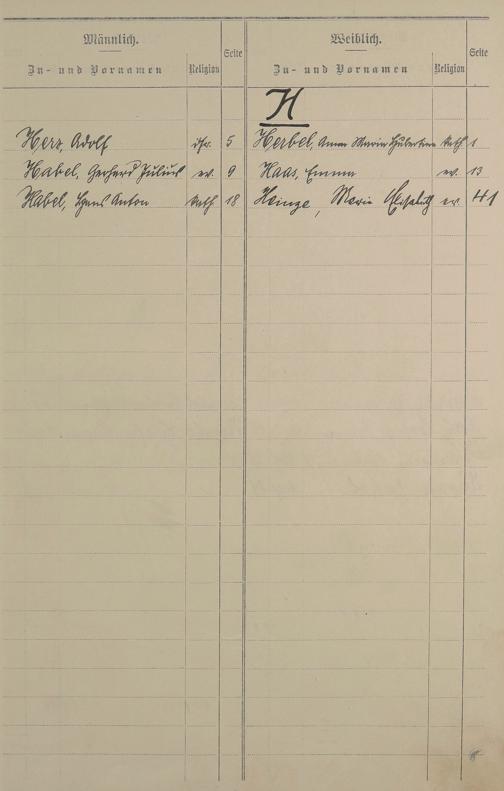 Männlich.
Zu- und Vornamen Religion Seite
Weiblich.
Zu- und Vornamen Religion Seite
H
Herz, Adolf isr. 5
Habel, Gerhard Julius ev. 9
Habel, Hans Anton kath. 18
Herbel, Anna Maria Hubertine kath. 1
Haas, Emma ev. 13
Heinze, Marie Elisabeth ev. 41